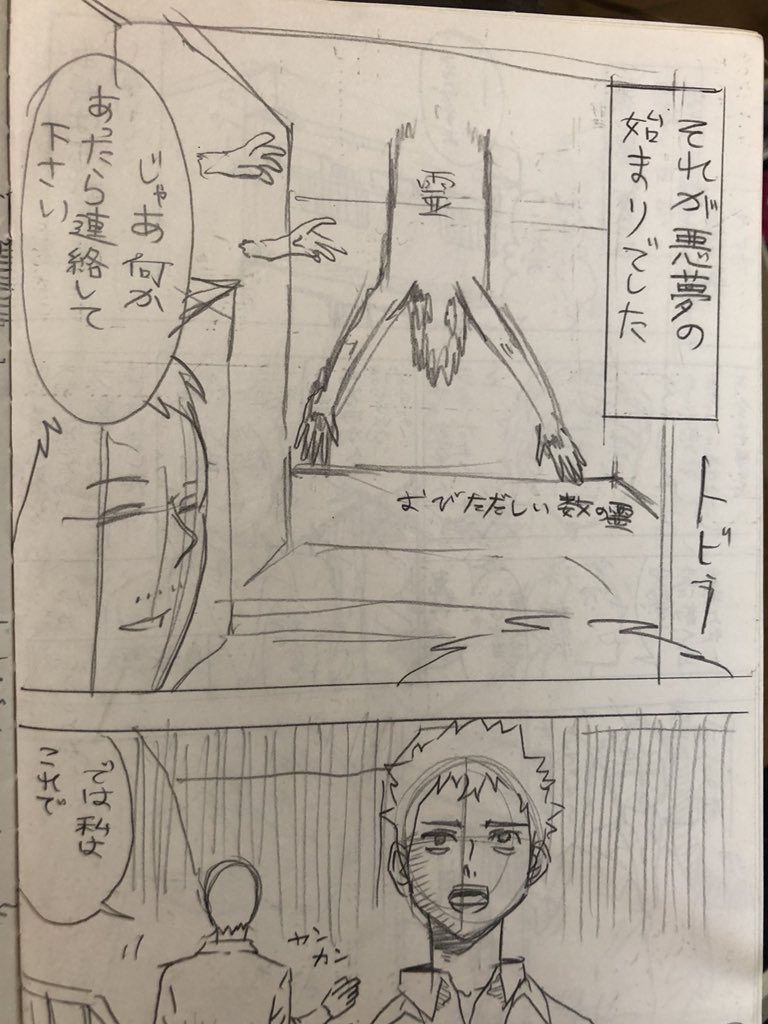 それが悪夢の
始まりでした
トビラ
霊
おびただしい数の霊
じゃあ何か
あったら連絡して
下さい
カン
カン
では私は
これで